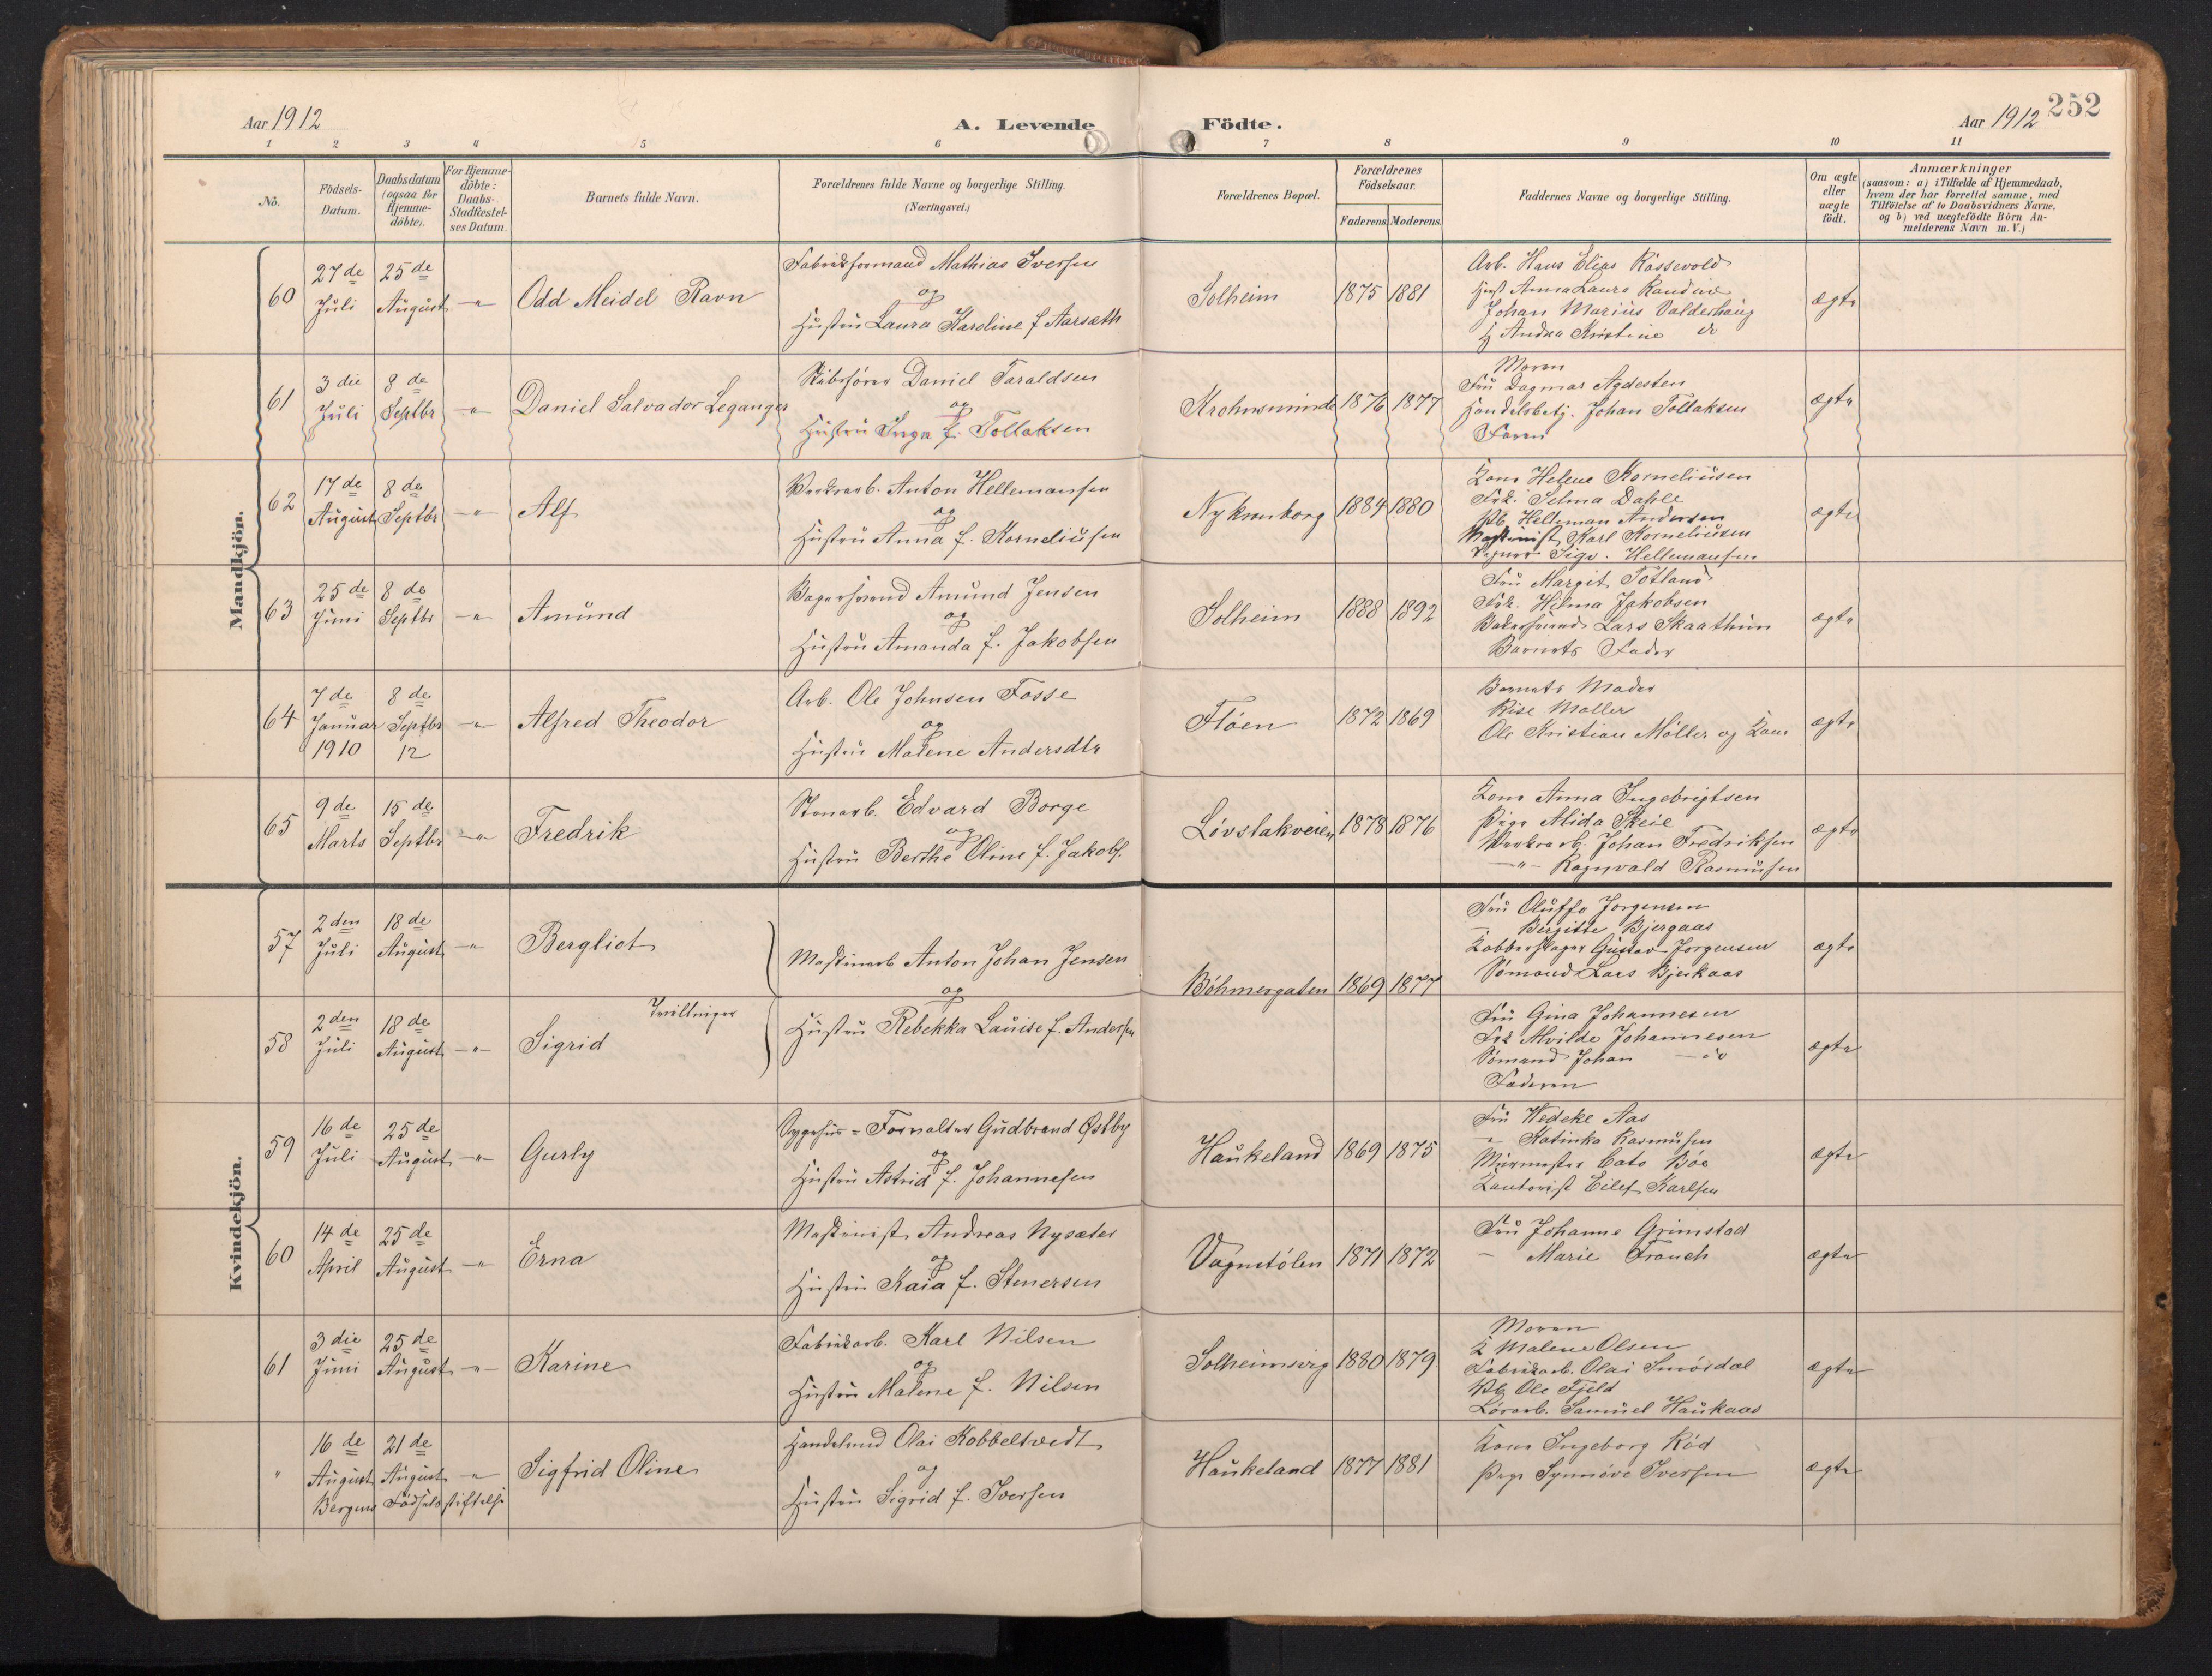 Aar 1912
A. Levende
Födte.
Aar 1912
252
1 2 3 4 5 6 7 8 9 10 11
No.
Födsels-
Datum.
Daabsdatum
(ogsaa for
Hjemme-
döbte).
For Hjemme-
döbte:
Daabs-
Stadfæstel-
ses Datum.
Barnets fulde Navn.
Forældrenes fulde Navne og borgerlige Stilling.
(Næringsvei.)
Forældrenes Bopæl.
Forældrenes
Födselsaar.
Faderens. Moderens.
Faddernes Navne og borgerlige Stilling.
Om ægte
eller
uægte
födt.
Anmærkninger
(saasom: a) i Tilfælde af Hjemmedaab,
hvem der har forrettet samme, med
Tilföielse af to Daabsvidners Navne,
og b) ved uægtefödte Börn An-
melderens Navn m. V.)
Mandkjön.
60
27de
Juli
25de
August
-"-
Odd Meidel Ravn
Fabrikformand Mathias Iversen
og
Hustru Laura Karoline f. Aarsæth
Solheim
1875 1881
Arb. Hans Elias Rossevold
Hust. Anna Laura Randine
Johan Marius Valderhaug
H Andrea Kristine do
ægte
61
3die
Juli
8de
Septbr
-"-
Daniel Salvador Leganger
Skibsfører Daniel Taraldsen
og
Hustru Inga f. Tollaksen
Krohnsminde
1876 1877
Moren
Fru Dagmar Agdesten
Handelsbetj. Johan Tollaksen
Faren
ægte
62
17de
August
8de
Septbr
-"-
Alf
Værksarb. Anton Hellemansen
og
Hustru Anna f. Korneliusen
Nykronborg
1884 1880
Kone Helene Korneliusen
Frk. Selma Dahle
Helleman Andersen
Maskinist Karl Korneliusen
Sigv. Hellemansen
ægte
63
25de
Juni
8de
Septbr
-"-
Amund
Bagersvend Amund Jensen
og
Hustru Amanda f. Jakobsen
Solheim
1888 1892
Fru Margit Totland
Frk. Helma Jakobsen
Bakersvend Lars Skaathun
Barnets Fader
ægte
64
7de
Januar
1910
8de
Septbr
12
-"-
Alfred Theodor
Arb. Ole Johnsen Fosse
og
Hustru Malene Andersdtr
Flöen
1872 1869
Barnets Moder
Rise Møller
Ole Kristian Møller og Kone
ægte
65
9de
Marts
15de
Septbr
-"-
Fredrik
Stenarb. Edvard Borge
og
Hustru Berthe Oline f. Jakobs.
Løvstakveien
1878 1876
Kone Anna Ingebrigtsen
Pige Alida Skeie
Værksarb. Johan Fredriksen
-"- Ragnvald Rasmusen
ægte
Kvindekjön.
57
2den
Juli
18de
August
-"-
Bergliot
Maskinarb Anton Johan Jensen
og
Hustru Rebekka Lauise f. Andersen
Böhmergaten
1869 1877
Fru Oluffa Jorgensen
- Birgitte Bjergaas
Kobberslager Gustav Jorgensen
Sømand Lars Bjerkaas
ægte
58
2den
Juli
18de
August
-"-
Tvillinger
Sigrid
Fru Gina Johannesen
Frk Alvilde Johannesen
Sømand Johan - do
Faderen
ægte
59
16de
Juli
25de
August
-"-
Gurly
Sygehus-Forvalter Gudbrand Østby
og
Hustru Astrid f. Johannesen
Haukeland
1869 1875
Fru Wedeke Aas
" Katinka Rasmusen
Murmester Cato Böe
Kontorist Eilef Karlsen
ægte
60
14de
April
25de
August
-"-
Erna
Maskinist Andreas Nysæter
og
Hustru Kaia f. Stenersen
Vognstølen
1871 1872
Fru Johanne Grimstad
- Marie Franch
ægte
61
3die
Juni
25de
August
-"-
Karine
Fabrikarb. Karl Nilsen
og
Hustru Malene f. Nilsen
Solheimsvig
1880 1879
Moren
K Malene Olsen
Fabrikarb. Olai Smørdal
Ole Fjeld
Samuel Haukaas
ægte
"
16de
August
21de
August
-"-
Bergens Födselsstiftelse
Sigfrid Oline
Handelsmd Olai Kobbeltvedt
og
Hustru Sigrid f. Iversen
Haukeland
1877 1881
Kone Ingeborg Röd
Pige Synnöve Iversen
ægte